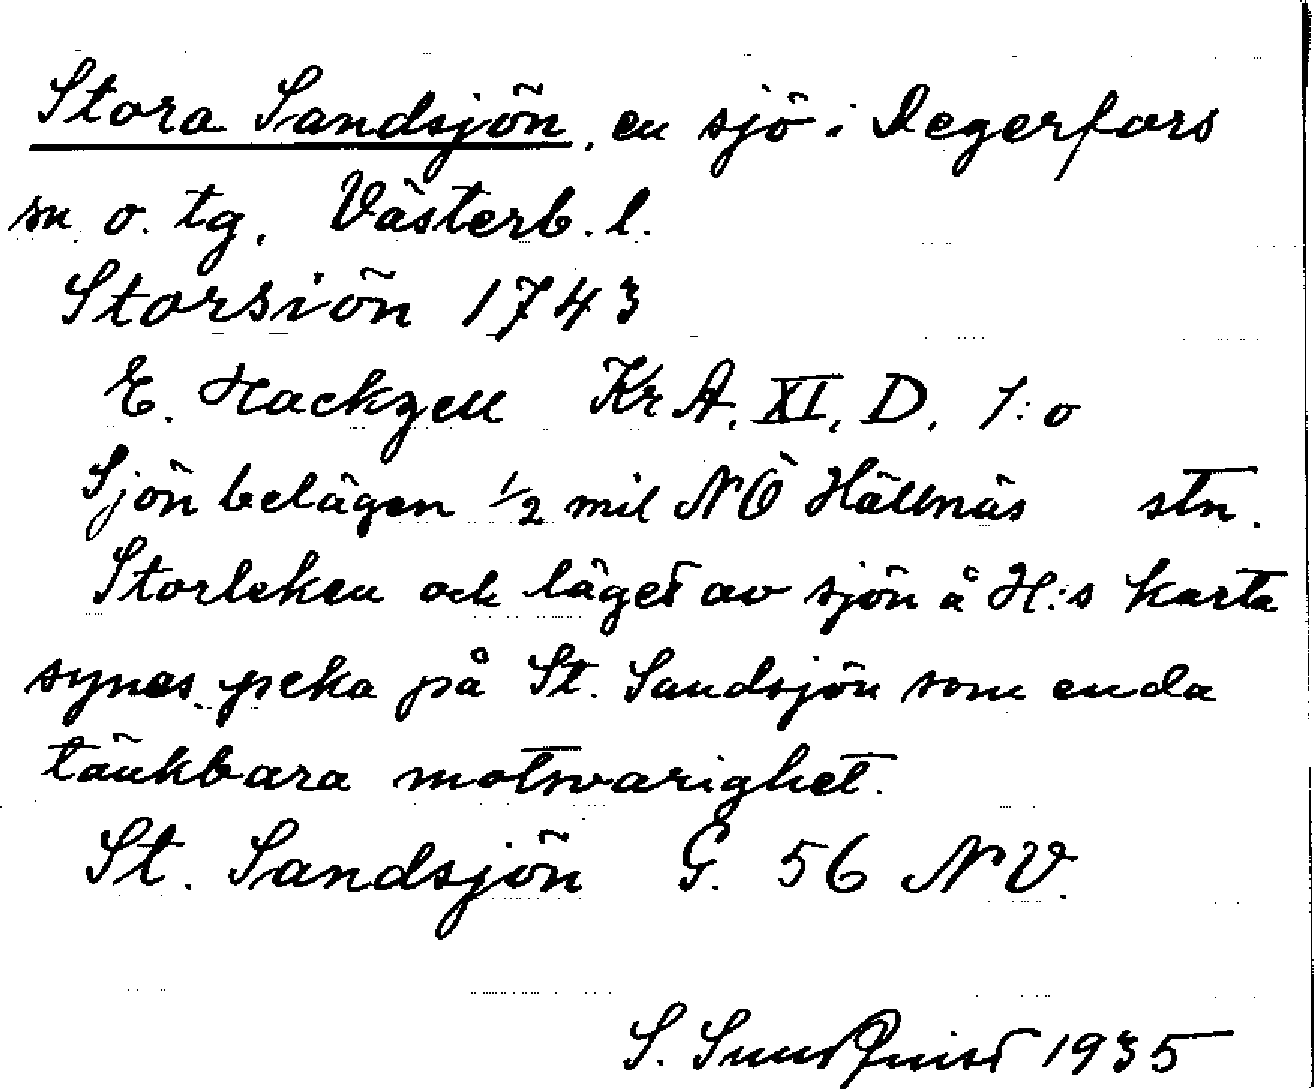 Stora Sandsjön, en sjö i Degerfors
sn o. tg. Västerb. l.
Storsiön 1743
E. Hackzell Kr A. XI, D. 1:o
Sjön belägen 1/2 mil NÖ Hällnäs stn.
Storleken och läget av sjön å H:s karta
synes peka på St. Sandsjön som enda
tänkbara motsvarighet.
St. Sandsjön G. 56 NV.
S. Sundquist 1935